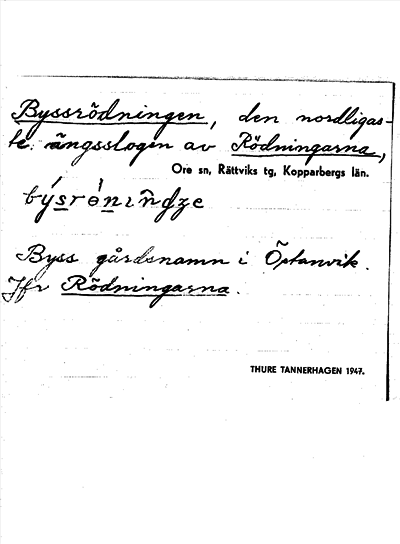 Byssrödningen, den nordligas-
te ängsslogen av Rödningarna,
Ore sn, Rättviks tg, Kopparbergs län.
Byss gårdsnamn i Östanvik.
Jfr Rödningarna.
THURE TANNERHAGEN 1947.